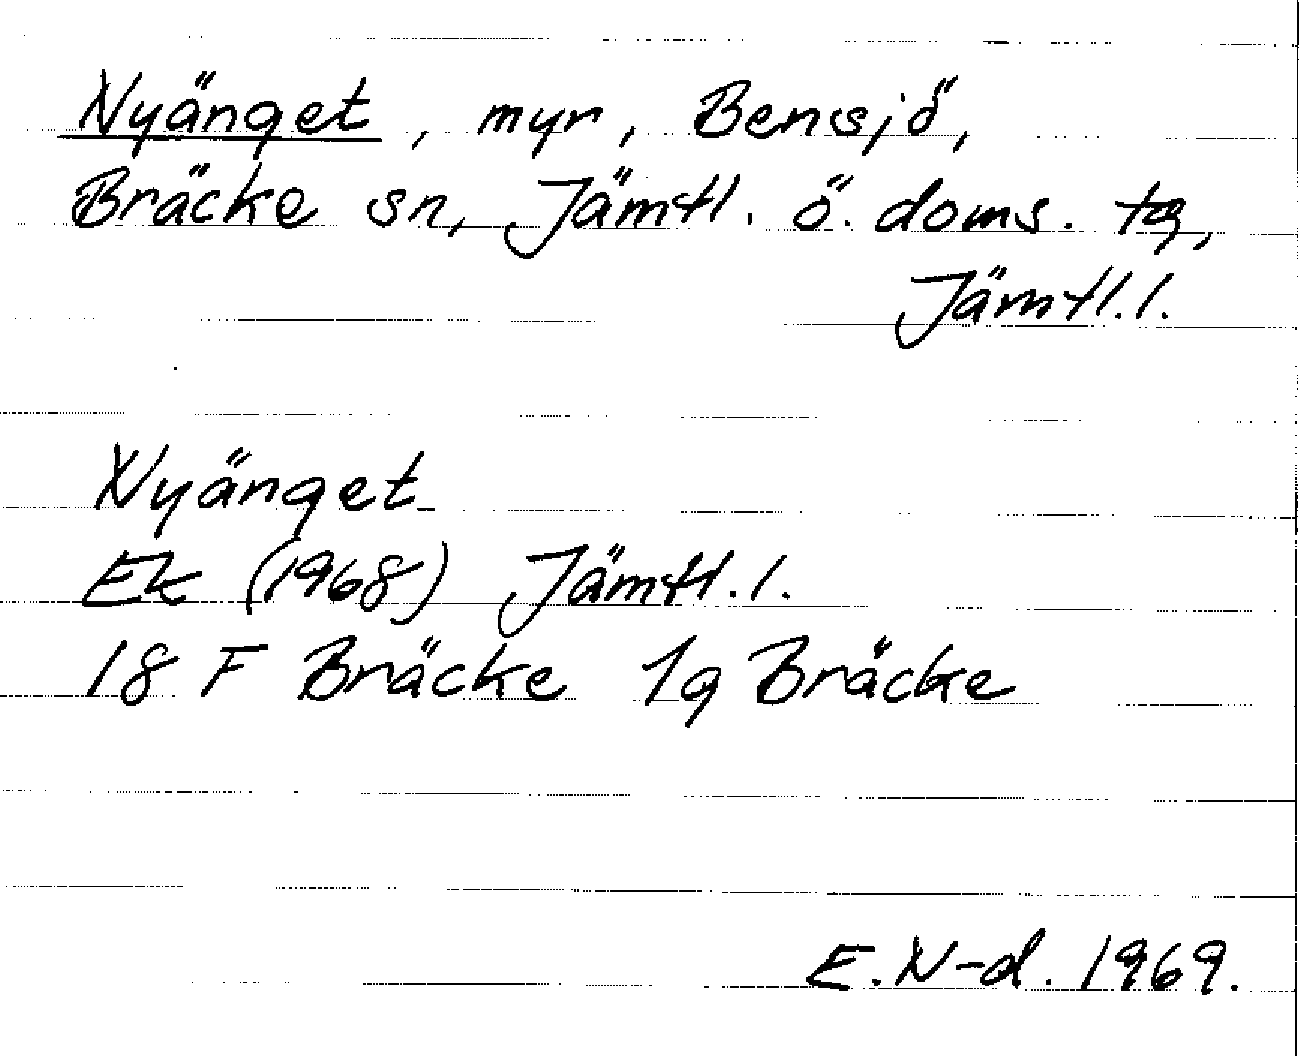 Nyänget, myr, Bensjö,
Bräcke sn, Jämtl. ö. doms. tg,
Jämtl.l.
Nyänget
Ek (1968) Jämtl.l.
18 F Bräcke 1g Bräcke
E.N-d. 1969.